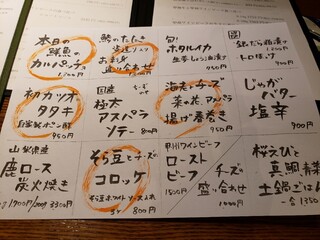 本日の
鮮魚の
カルパッチョ
1,200円
鰹のたたき
お刺身
盛り合せ
旬!
ホタルイカ
生姜しょう油漬け
950円
銀だら西京漬け
900円
じゃが
バター
塩辛
900円
初カツオ
タタキ
自家製ポン酢
950円
国産
極太
アスパラ
ソテー 800円
海老とチーズ
菜の花 アスパラ
揚げ春巻き
950円
山梨県産
鹿ロース
炭火焼き
100g 1900円/200g 3300円
そら豆とチーズの
コロッケ
800円
甲州ワインビーフ
ロースト
ビーフ
1500円
チーズ
盛り合わせ
1000円
桜えびと
真鯛 青菜
土鍋ごはん
一合 1350